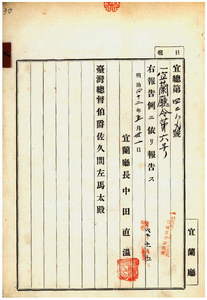 宜總第四二六號
一宜蘭廳令第六號
右報告例ニ依リ報告ス
明治四十二年五月 日
宜蘭廳長中田直溫
臺灣總督伯爵佐久間左馬太殿
宜蘭廳